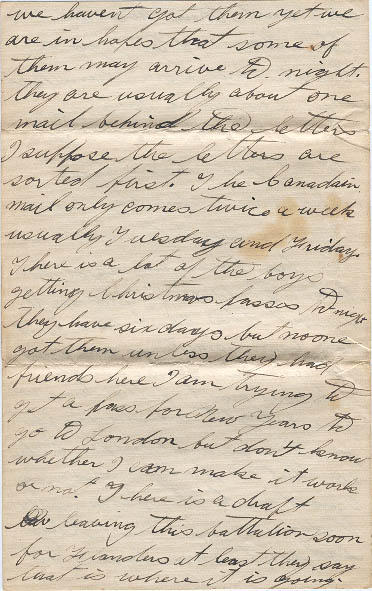 we haven't got them yet we
are in hopes that some of
them may arrive to night.
they are usually about one
mail behind the letters
I suppose the letters are
sorted first. The Canadain
mail only comes twice a week
usually Tuesday and Friday.
There is a lot of the boys
getting Christmas passes to night
They have six days but no one
got them unless they had
friends here I am trying to
get a pass for New Years to
go to London but don't know
whether I can make it work
or not. There is a draft
leaving this battalion soon
for Flanders at least they say
that is where it is going.